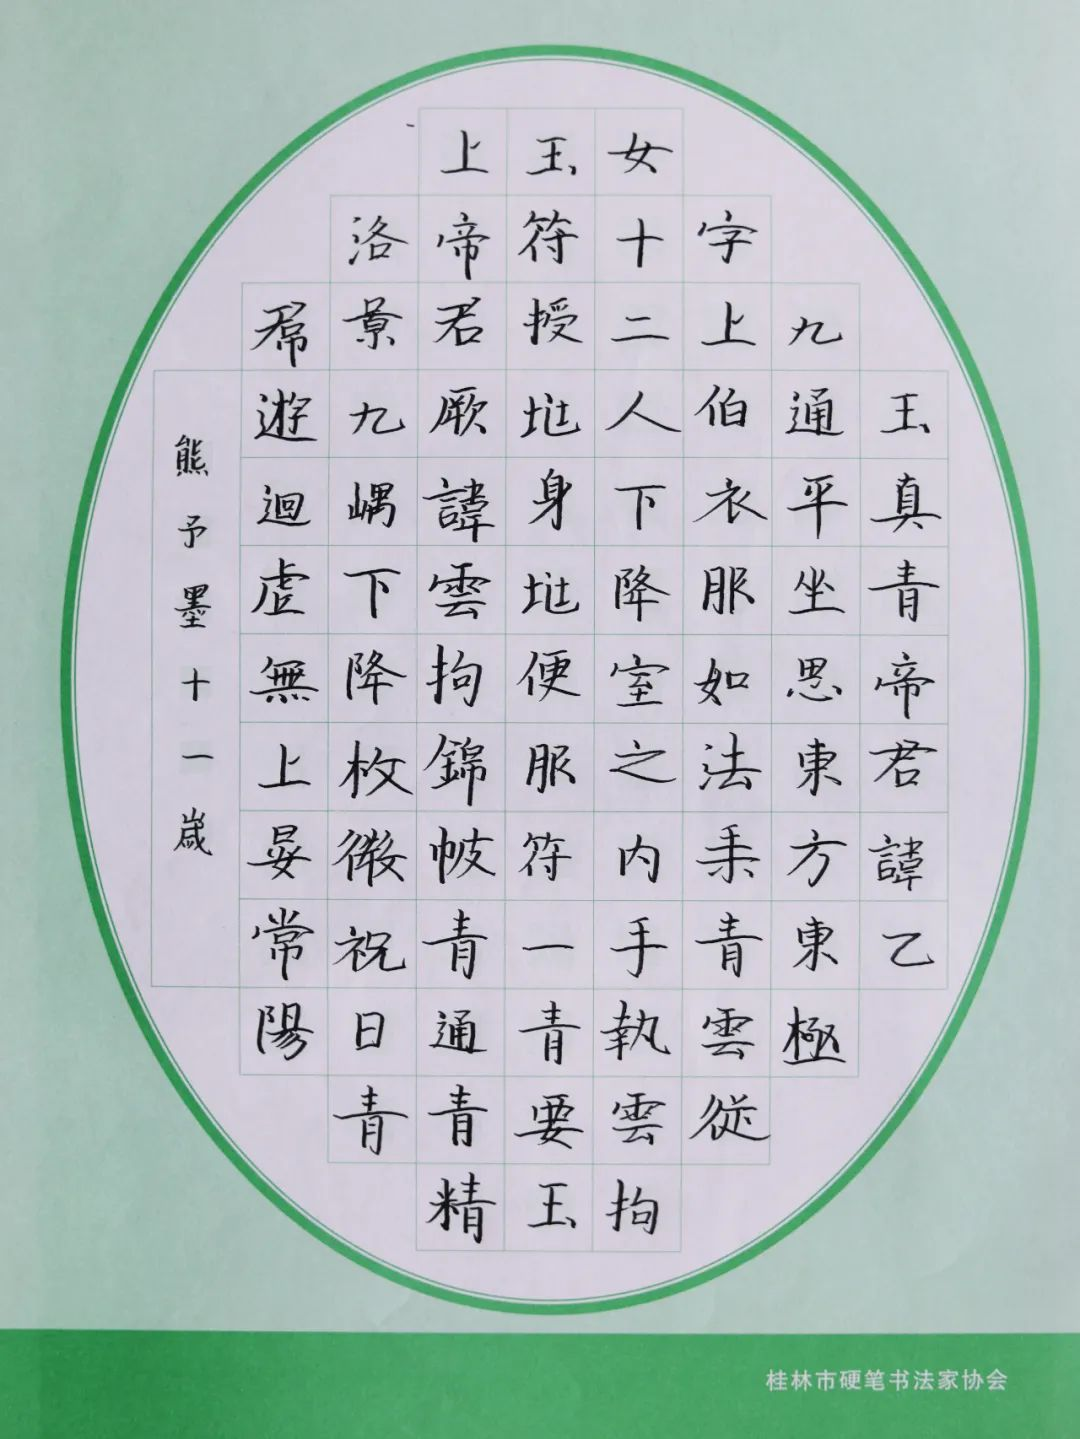 玉真青帝君諱乙
九通平坐思東方東極
字上伯衣服如法乘青雲從
女十二人下降室之内手執雲拘
玉符授身便服符一青要玉
上帝君厥諱雲拘錦帔青通青精
洛景九嵎下降枚微祝日青
帬遊迴虛無上晏常陽
熊予墨十一歲
桂林市硬笔书法家协会